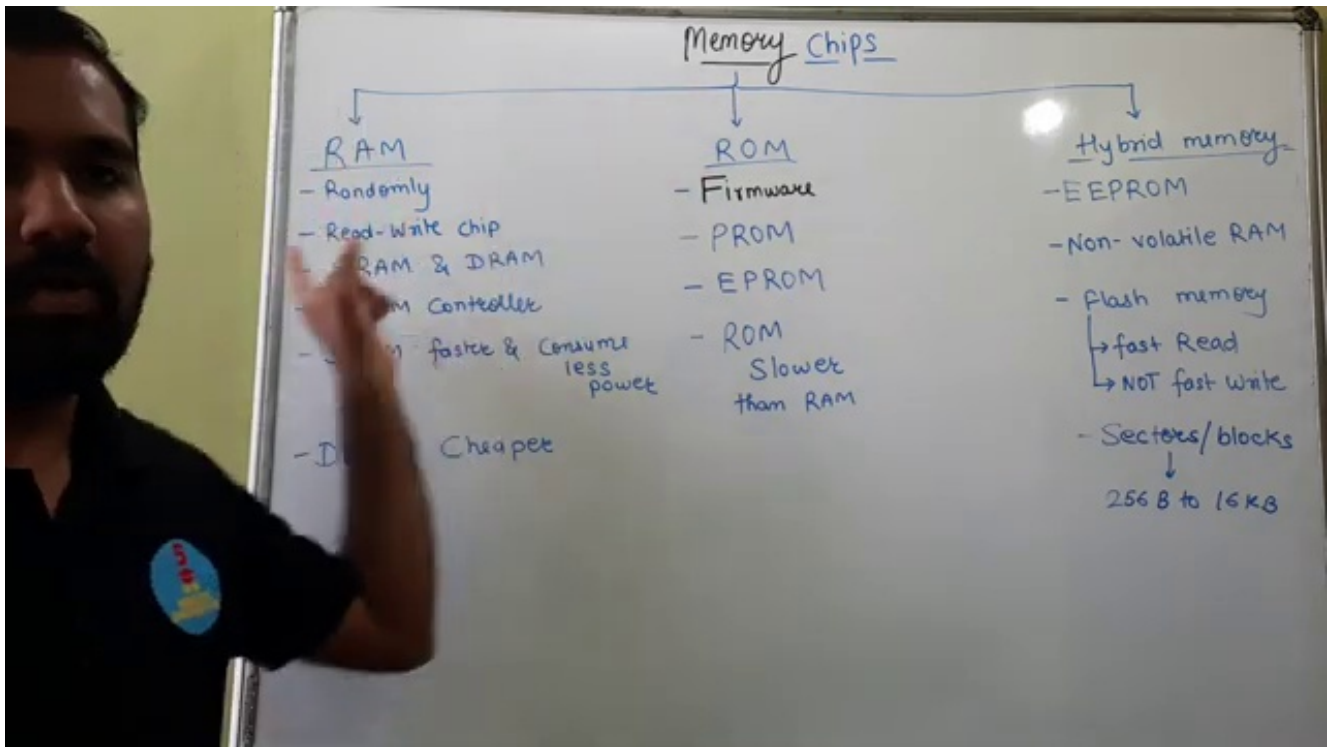 Memory Chips
RAM
- Randomly
- Read-Write chip
RAM & DRAM
Controller
- faster & Consume
less
power
- D Cheaper
ROM
- Firmware
- PROM
- EPROM
- ROM
Slower
than RAM
Hybrid memory
- EEPROM
- Non-volatile RAM
- Flash memory
→ fast Read
→ NOT fast write
- Sectors/blocks
↓
256 B to 16 KB